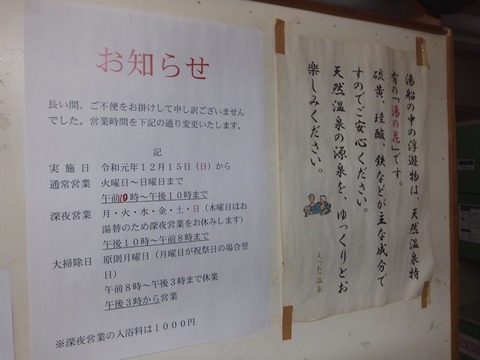 お知らせ
長い間、ご不便をお掛けして申し訳ございません
でした。営業時間を下記の通り変更いたします。
記
実施日 令和元年12月15日（日）から
通常営業 火曜日～日曜日まで
午前10時～午後10時まで
深夜営業 月・火・水・金・土・日（木曜日はお
湯替のため深夜営業をお休みします）
午後10時～午前8時まで
大掃除日 原則月曜日（月曜日が祝祭日の場合翌
日）
午前8時～午後3時まで休業
午後3時から営業
※深夜営業の入浴料は1000円
湯船の中の浮遊物は、天然温泉特
有の「湯の花」です。
硫黄、珪酸、鉄などが主な成分で
すのでご安心ください。
天然温泉の源泉を、ゆっくりとお
楽しみください。